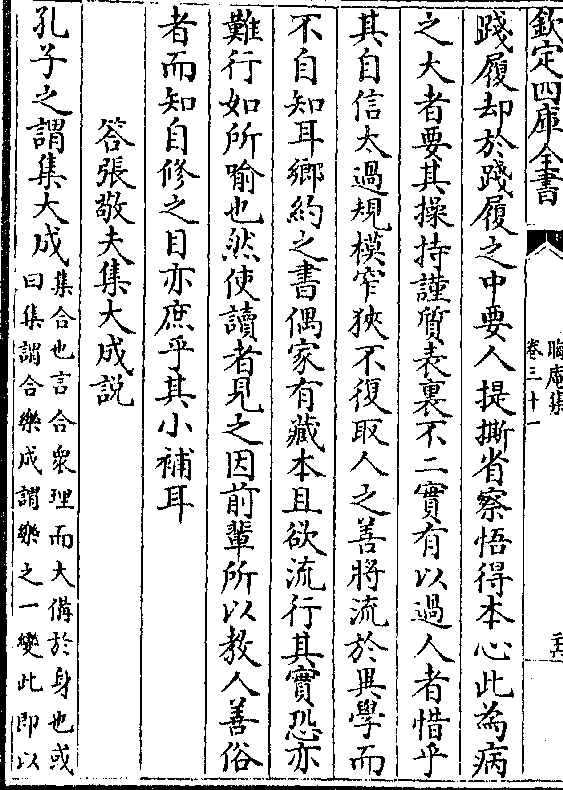 欽定四庫全書
晦庵集
卷三十一
踐履却於踐履之中要人提撕省察悟得本心此為病
之大者要其操持謹質表裏不二實有以過人者惜乎
其自信太過規模窄狹不復取人之善將流於異學而
不自知耳鄉約之書偶家有藏本且欲流行其實恐亦
難行如所喻也然使讀者見之因前輩所以教人善俗
者而知自修之目亦庶乎其小補耳
答張敬夫集大成說
孔子之謂集大成
集合也言合衆理而大備於身也或
曰集謂合樂成謂樂之一變此即以